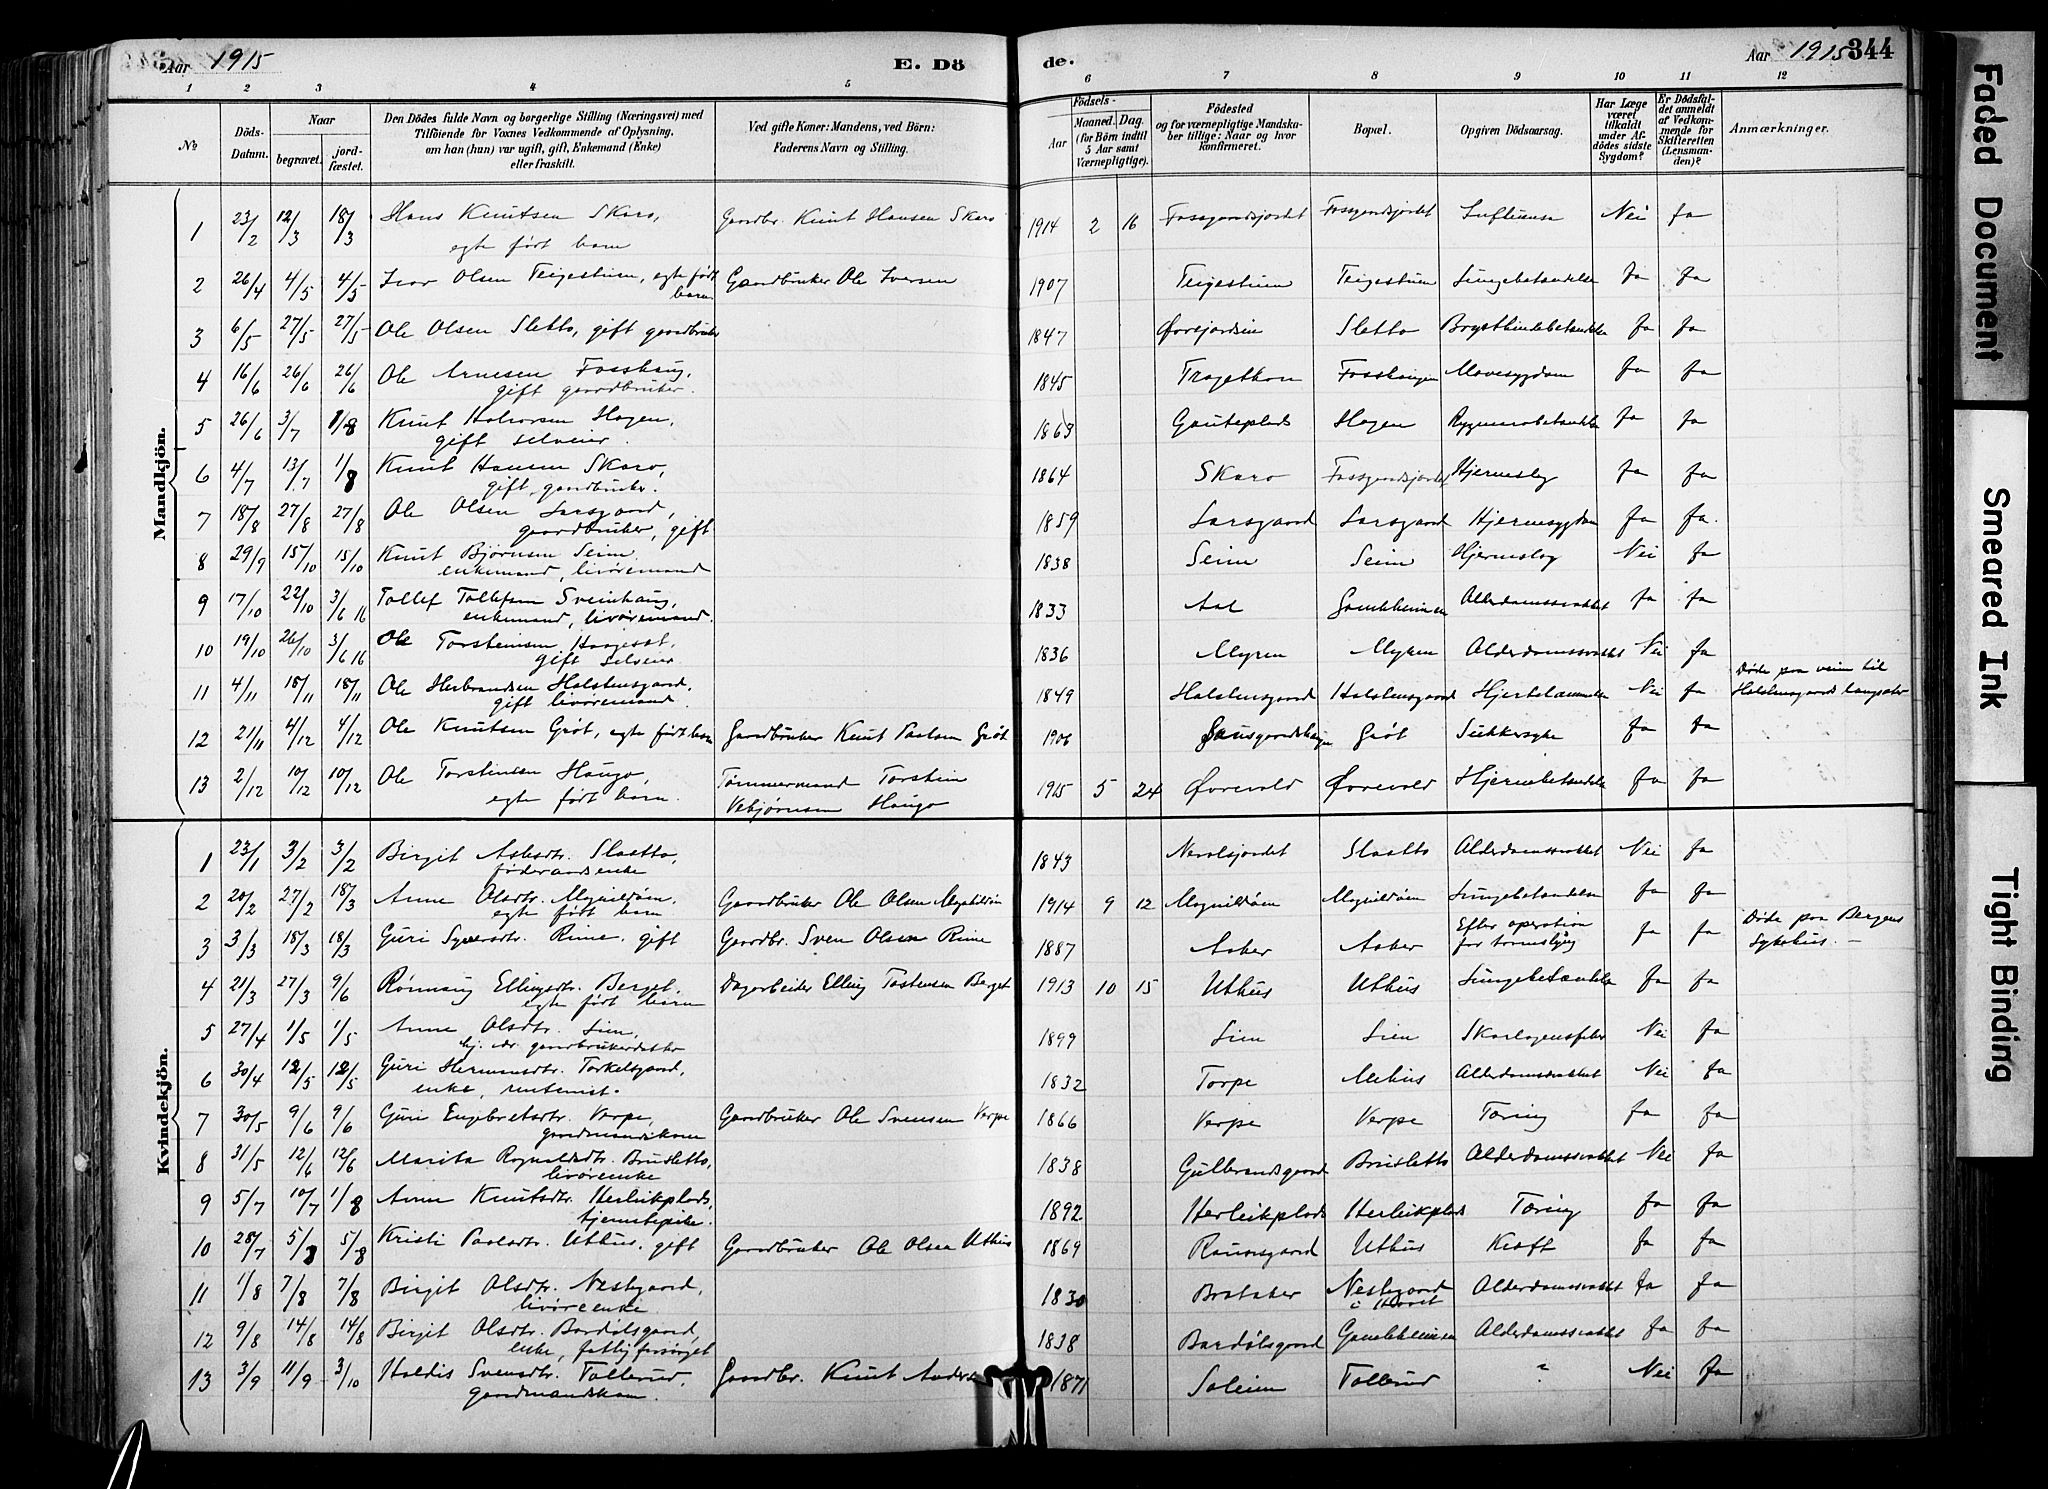 Aar 1915 E. Dö
de. Aar 1915 344
1 2 3 4 5 6 7 8 9 10 11 12
No
Döds-Datum.
Naar
begravet. jordfæstet.
Den Dödes fulde Navn og borgerlige Stilling (Næringsvei) med
Tilföiende for Voxnes Vedkommende af Oplysning,
om han (hun) var ugift, gift, Enkemand (Enke)
eller fraskilt.
Ved gifte Koner: Mandens, ved Börn:
Faderens Navn og Stilling.
Födsels-
Aar Maaned. Dag.
(for Börn indtil
5 Aar samt
Værnepligtige).
Födested
og for værnepligtige Mandskaber tillige: Naar og hvor
konfirmeret.
Bopæl.
Opgiven Dödsaarsag.
Har Læge været tilkaldt under Afdödes sidste Sygdom?
Er Dödsfaldet anmeldt af Vedkommende for Skifteretten (Lensmanden)?
Anmærkninger.
Mandkjön.
1 23/2 12/3 18/3 Hans Knutsen Skaro, Gaardbr. Knut Hansen Skaro 1914 2 16 Fossgardsjordet Fossgardsjordet Influensa Nei Ja
egte født barn
2 26/4 4/5 4/5 Ivar Olsen Teigestuen, egte født Gaardbruker Ole Iversen 1907 Teigestuen Teigestuen Lungebetændelse Ja Ja
barn
3 6/5 27/5 27/5 Ole Olsen Sletto, gift gaardbruker 1847 Øvrejordein Sletto Brysthindebetændelse Ja Ja
4 16/6 26/6 26/6 Ole Arnesen Fosshaug, 1845 Tragethon Fosshaugen Mavesygdom Ja Ja
gift gaardbruker.
5 26/6 3/7 1/8 Knut Halvorsen Hagen, 1863 Gauteplads Hagen Ja Ja
gift selveier.
6 4/7 13/7 1/8 Knut Hansen Skaro, 1864 Skaro Fossgardsjordet Hjerneslag Ja Ja
gift, gaardbruker.
7 18/8 27/8 27/8 Ole Olsen Larsgaard, 1859 Larsgaard Larsgaard Hjernesygdom Ja Ja.
gaardbruker, gift
8 29/9 15/10 15/10 Knut Bjørnsen Seim 1838 Seim Seim Hjerneslag Nei Ja
enkemand, livøremand
9 17/10 22/10 3/6 16 Tollef Tollefsen Sveinhaug, 1833 Aal Gamleheimen Alderdomssvakhet Ja Ja
enkemand, livøremand.
10 19/10 26/10 3/6 16 Ole Torsteinsen Haugeset. 1836 Myren Myren Alderdomssvakhet Nei Ja
gift selveier
11 4/11 18/11 18/11 Ole Herbrandsen Halstensgaard, 1849 Halstensgaard Halstensgaard Hjertelammelse Nei Ja Døde paa veien til
gift livøremand. Halstensgaards langsæter
12 21/11 4/12 4/12 Ole Knutsen Grøt, egte født barn Gaardbruker Knut Paalsen Grøt 1906 Grøt Sukkersyke Ja Ja
13 2/12 10/12 10/12 Ole Torsteinsen Haugo, Tømmermand Torstein 1915 5 24 Øvrevold Øvrevold Hjernebetændelse Ja Ja
egte født barn. Vebjørnsen Haugo
Kvindekjön.
1 23/1 3/2 3/2 Birgit Aslesdtr. Slaatto, 1843 Nevalsjordet Slaatto Alderdomssvakhet Nei Ja
føderaadsenke
2 20/2 27/2 18/3 Anne Olsdtr. Magnildøin, Gaardbruker Ole Olsen Magnildøin 1914 9 12 Magnildøin Magnildøin Lungebetændelse Ja Ja
egte født barn
3 3/3 18/3 18/3 Guri Syversdtr. Rime, gift Gaardbr. Sven Olsen Rime 1887 Aaker Aaker Efter operation Ja Ja Døde paa Bergens
for tarmslyng Sykehus.
4 21/3 27/3 9/6 Rønnaug Ellingsdtr. Berget. Dagarbeider Elling Tostensen Berget 1913 10 15 Uthus Uthus Lungebetændelse Ja Ja
egte født barn
5 27/4 1/5 1/5 Anne Olsdtr. Lien, 1899 Lien Lien Skarlagensfeber Nei Ja
hj.vær. gaardbrukerdatter
6 30/4 12/5 12/5 Guri Hermansdtr. Torkelsgaard, 1832 Torpe Mehus Alderdomssvakhet Nei Ja
enke, rentenist.
7 30/5 9/6 9/6 Guri Engebretsdtr. Verpe, Gaardbruker Ole Svensen Verpe 1866 Verpe Verpe Tæring Ja Ja
gaardmandskone
8 31/5 12/6 12/6 Marita Ragnaldsdtr. Brusletto, 1838 Gulbrandsgaard Brusletto Alderdomssvakhet Nei Ja
livøreenke
9 5/7 10/7 1/8 Anne Knutsdtr. Herleikplads, 1892 Herleikplads Herleikplads Tæring Ja Ja
tjenestepike.
10 28/7 5/8 5/8 Kristi Paalsdtr. Uthus, gift Gaardbruker Ole Olsen Uthus 1869 Uthus Kræft Ja Ja
11 1/8 7/8 7/8 Birgit Olsdtr. Nestegaard, 1830 Brataker Nestegaard Alderdomssvakhet Ja Ja
livøreenke
12 9/8 14/8 14/8 Birgit Olsdtr. Bardølsgaard, 1838 Bardølsgaard Gamleheimen Alderdomssvakhet Ja Ja
enke, fattigforsørget
13 3/9 11/9 3/10 Haldis Svensdtr. Tollerud, Gaardbr. Knut Anders 1871 Soleim Tollerud " Nei Ja
gaardmandskone.
Faded Document
Smeared Ink
Tight Binding